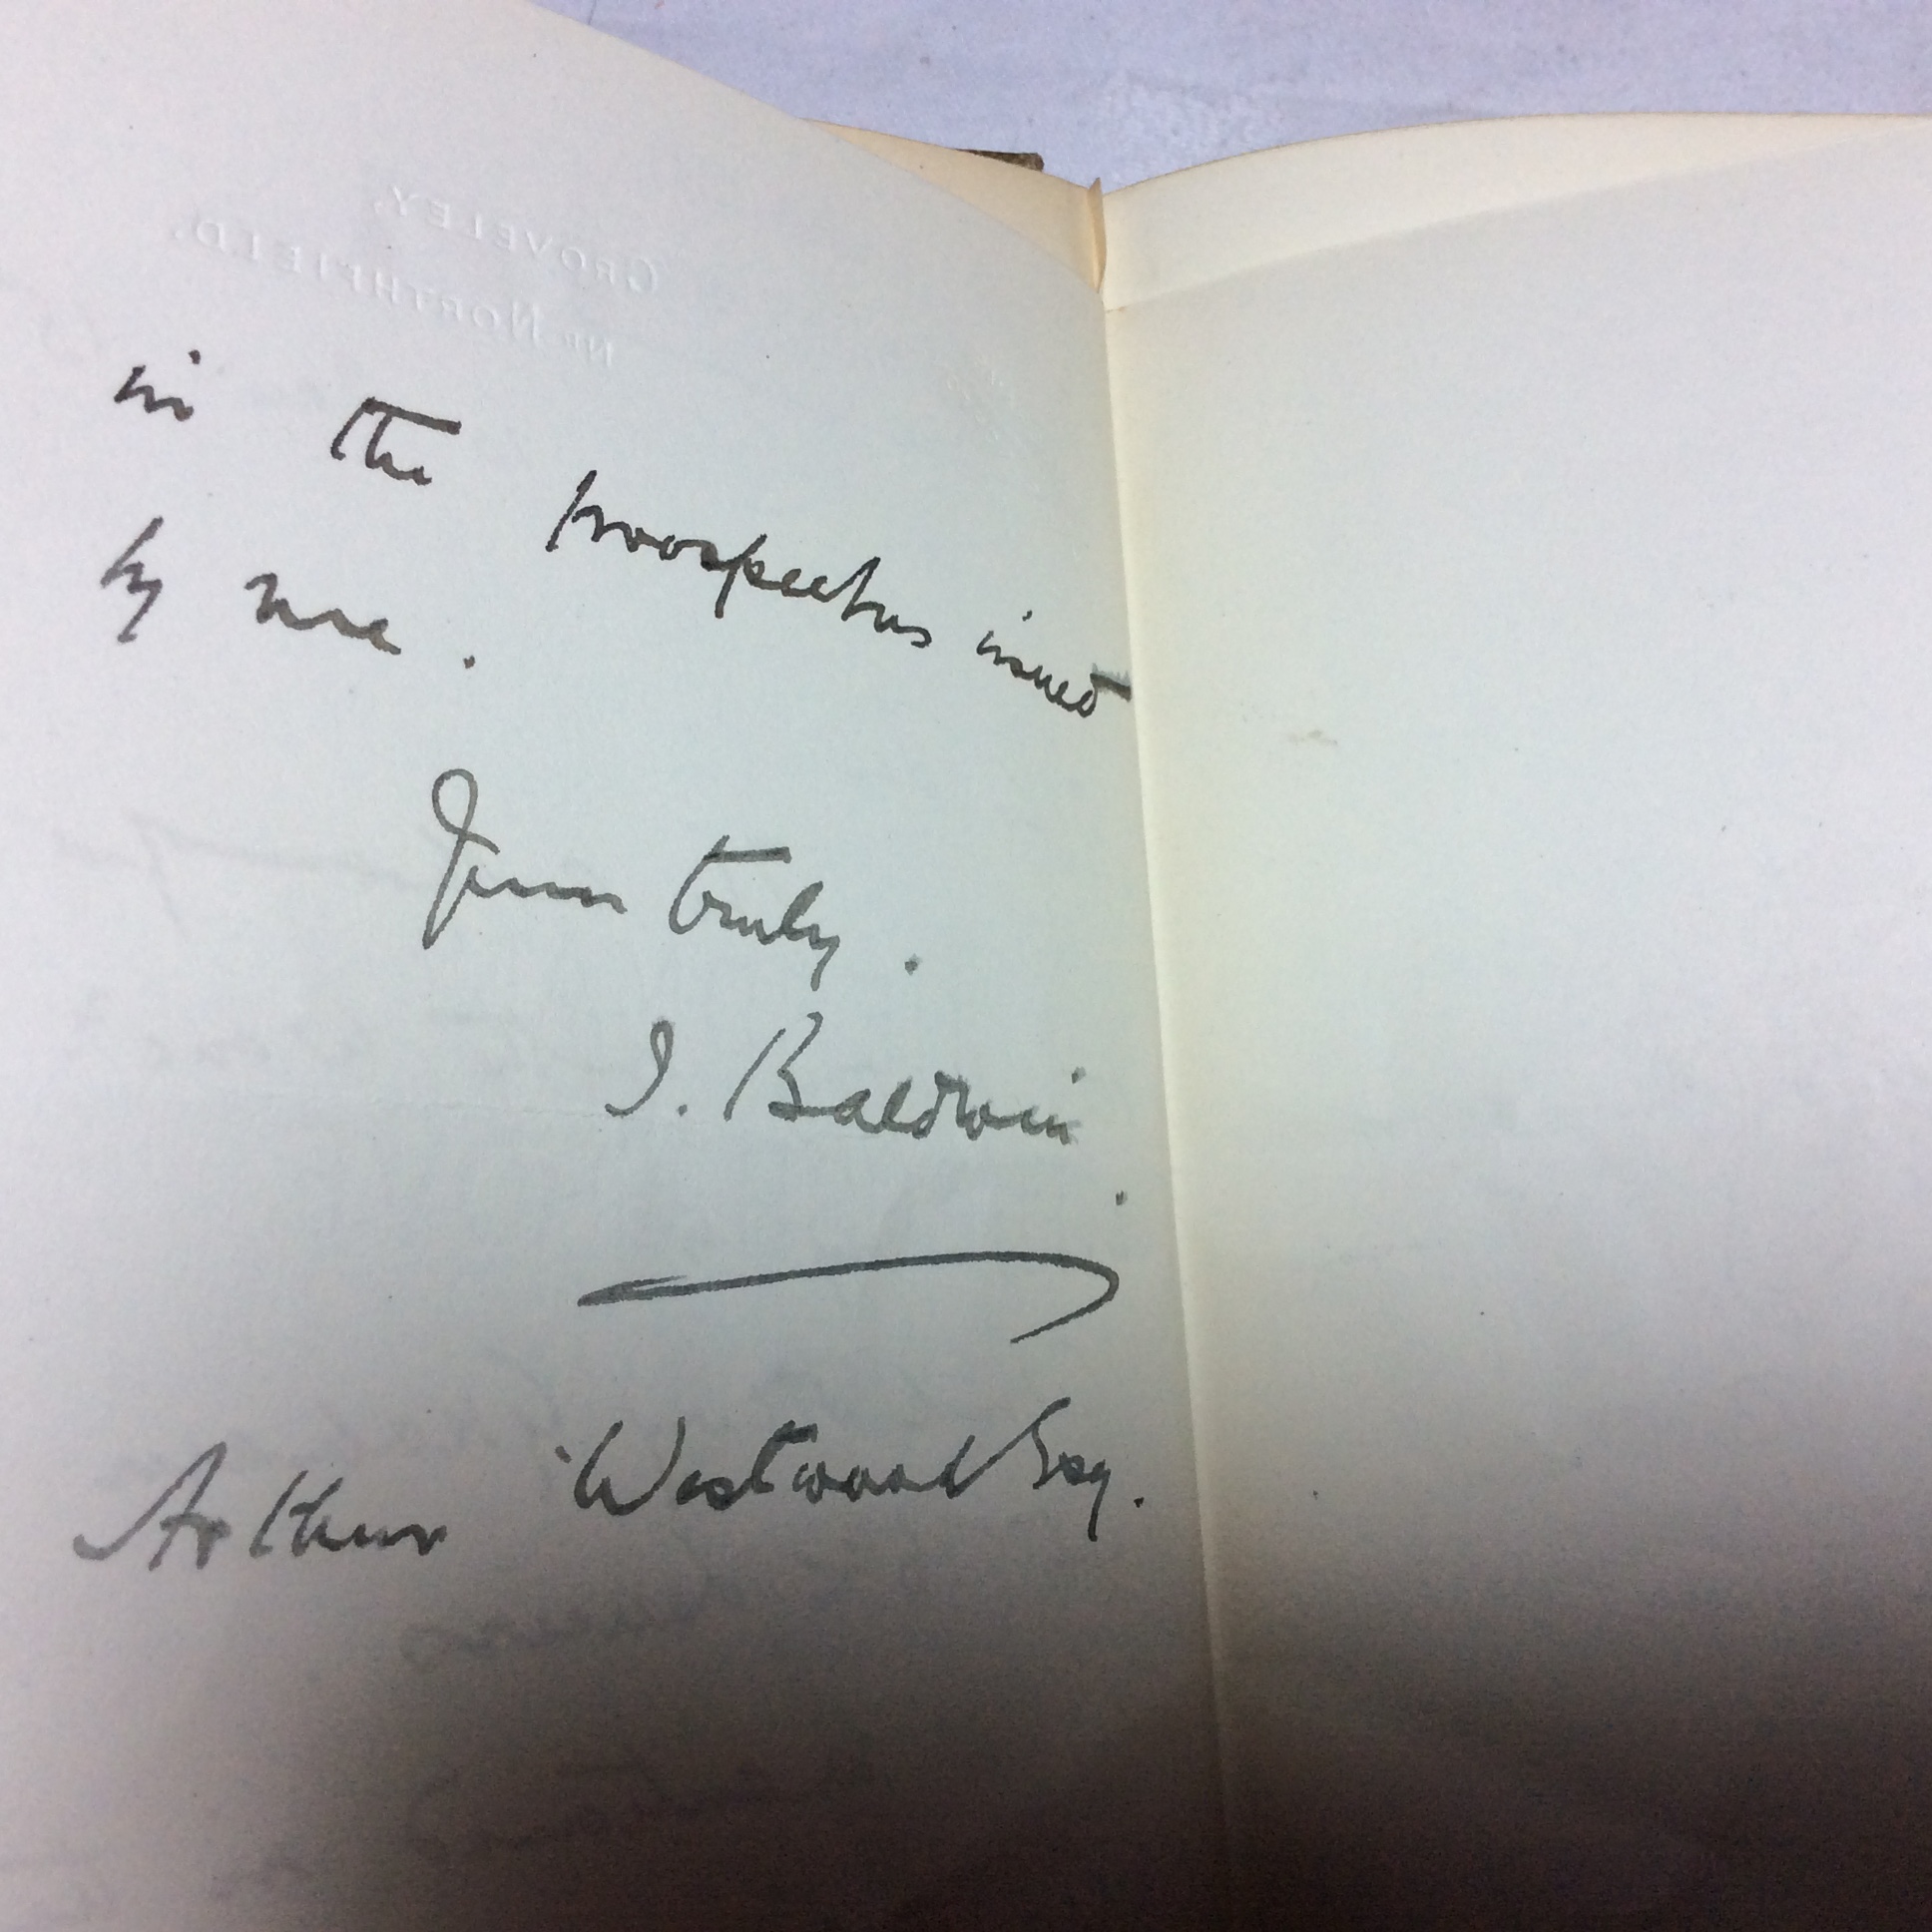 GROVELEY,
NR NORTHFIELD.
in the prospectus issued
by me.
Yours truly.
J. Baldwin.
Arthur Westwood Esq.